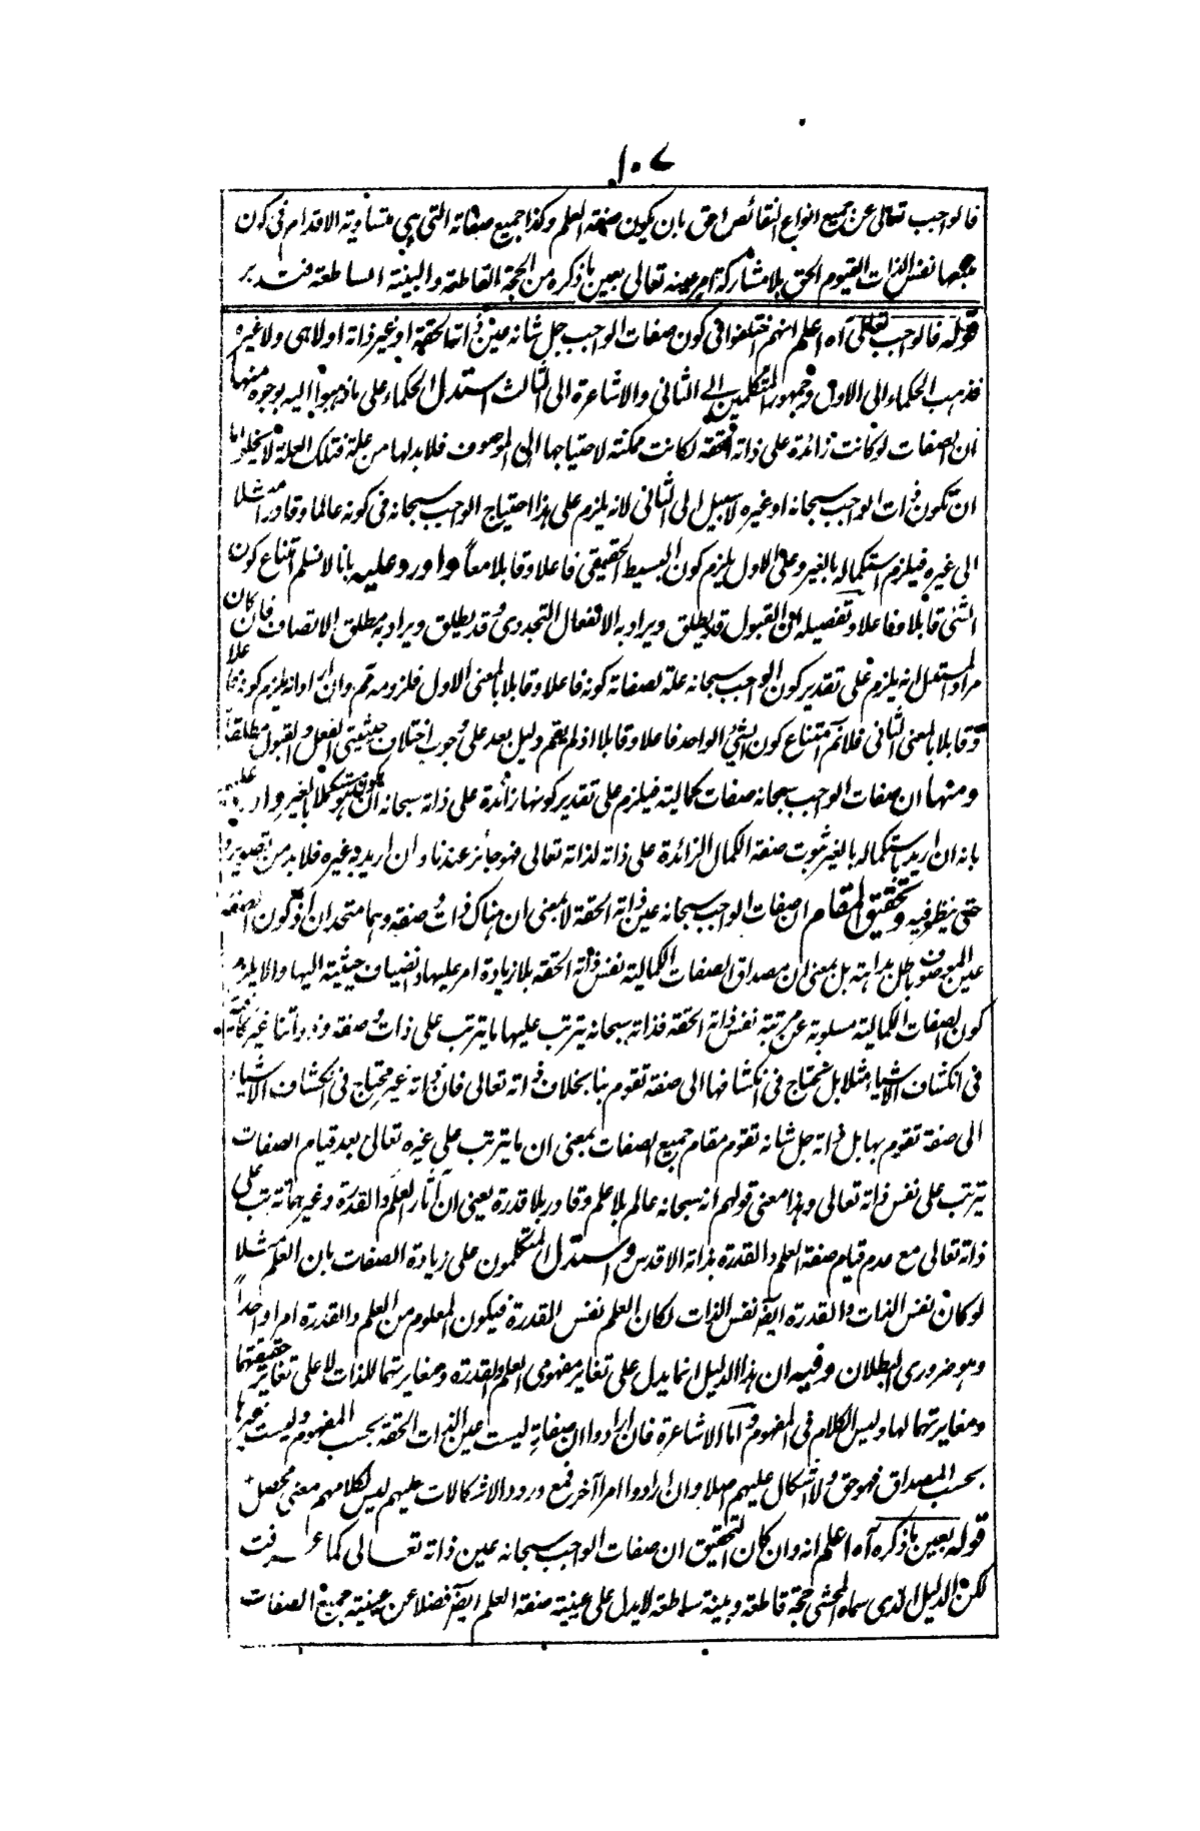 ١٠٧
فالواجب تعالى عن جميع انواع النقائص احق بان يكون صفة العلم وكذا جميع صفاته التي هي متساوية الاقدام في كون
نفس الذات القيوم الحق بلا مشاركة امر عينه تعالى بعين ما ذكره من الحجة القاطعة والبينة الساطعة فتدبر
قوله فالواجب تعالى آه اعلم انهم اختلفوا في كون صفات الواجب جل شانه عين ذاته الحقة او غير ذاته او لا هي ولا غيره
فذهب الحكماء الى الاول وجمهور المتكلمين الى الثاني والاشاعرة الى الثالث استدل الحكماء على ما ذهبوا اليه بوجوه منها
ان الصفات لو كانت زائدة على ذاته الحقة لكانت ممكنة لاحتياجها الى الموصوف فلا بد لها من علة فتلك العلة لا يخلو اما
ان تكون ذات الواجب سبحانه او غيره لا سبيل الى الثاني لانه يلزم على هذا احتياج الواجب سبحانه في كونه عالما وقادرا مثلا
الى غيره فيلزم استكماله بالغير وعلى الاول يلزم كون البسيط الحقيقي فاعلا وقابلا معا واورد عليه بانا لا نسلم امتناع كون
الشئ قابلا وفاعلا وتفصيله ان القبول قد يطلق ويراد به الانفعال التجددي وقد يطلق ويراد به مطلق الاتصاف فان كان
مراد المستدل انه يلزم على تقدير كون الواجب سبحانه علة لصفاته كونه فاعلا وقابلا بالمعنى الاول فلزومه ثم وان اراد انه يلزم كونه فاعلا
وقابلا بالمعنى الثاني فلا نم امتناع كون الشئ الواحد فاعلا وقابلا اذ لم يقم دليل بعد على وجوب اختلاف حيثيتي الفعل والقبول مطلقا
ومنها ان صفات الواجب سبحانه صفات كمالية فيلزم على تقدير كونها زائدة على ذاته سبحانه ان يكون هو مستكملا بالغير واورد عليه
بانه ان اريد باستكماله بالغير ثبوت صفة الكمال الزائدة على ذاته لذاته تعالى فهو جائز عندنا وان اريد به غيره فلا بد من تصويره
حتى ينظر فيه وتحقيق المقام ان صفات الواجب سبحانه عين ذاته الحقة لا بمعنى ان هناك ذات وصفة وهما متحدان اذ كون الصفة
عين الموصوف باطل بداهة بل بمعنى ان مصداق الصفات الكمالية نفس ذاته الحقة بلا زيادة امر عليها وانضياف حيثية اليها والا يلزم
كون الصفات الكمالية مسلوبة عن مرتبة نفس ذاته الحقة فذاته سبحانه يترتب عليها ما يترتب على ذات وصفة وذواتنا غير كافية
في انكشاف الاشياء مثلا بل تحتاج في انكشافها الى صفة تقوم بنا بخلاف ذاته تعالى فان ذاته غير محتاج في انكشاف الاشياء
الى صفة تقوم بها بل ذاته جل شانه تقوم مقام جميع الصفات بمعنى ان ما يترتب على غيره تعالى بعد قيام الصفات
يترتب على نفس ذاته تعالى وهذا معنى قولهم انه سبحانه عالم بلا علم وقادر بلا قدرة يعني ان آثار العلم والقدرة وغيرهما تترتب على
ذاته تعالى مع عدم قيام صفة العلم والقدرة بذاته الاقدس واستدل المتكلمون على زيادة الصفات بان العلم مثلا
لو كان نفس الذات والقدرة ايضا نفس الذات لكان العلم نفس القدرة فيكون المعلوم من العلم والقدرة امرا واحدا
وهو ضروري البطلان وفيه ان هذا الدليل انما يدل على تغاير مفهومي العلم والقدرة ومغايرتهما للذات لا على تغاير حقيقتهما
ومغايرتهما لها وليس الكلام في المفهوم واما الاشاعرة فان ارادوا ان صفاته ليست عين الذات الحقة بحسب المفهوم وليست غيرها
بحسب المصداق فهو حق ولا اشكال عليهم اصلا وان ارادوا امرا آخر فمع ورود الاشكالات عليهم ليس لكلامهم معنى محصل
قوله بعين ما ذكره آه اعلم انه وان كان التحقيق ان صفات الواجب سبحانه عين ذاته تعالى كما عرفت
لكن الدليل الذي سماه المحشي حجة قاطعة وبينة ساطعة لا يدل على عينية صفة العلم ايضا فضلا عن عينية جميع الصفات